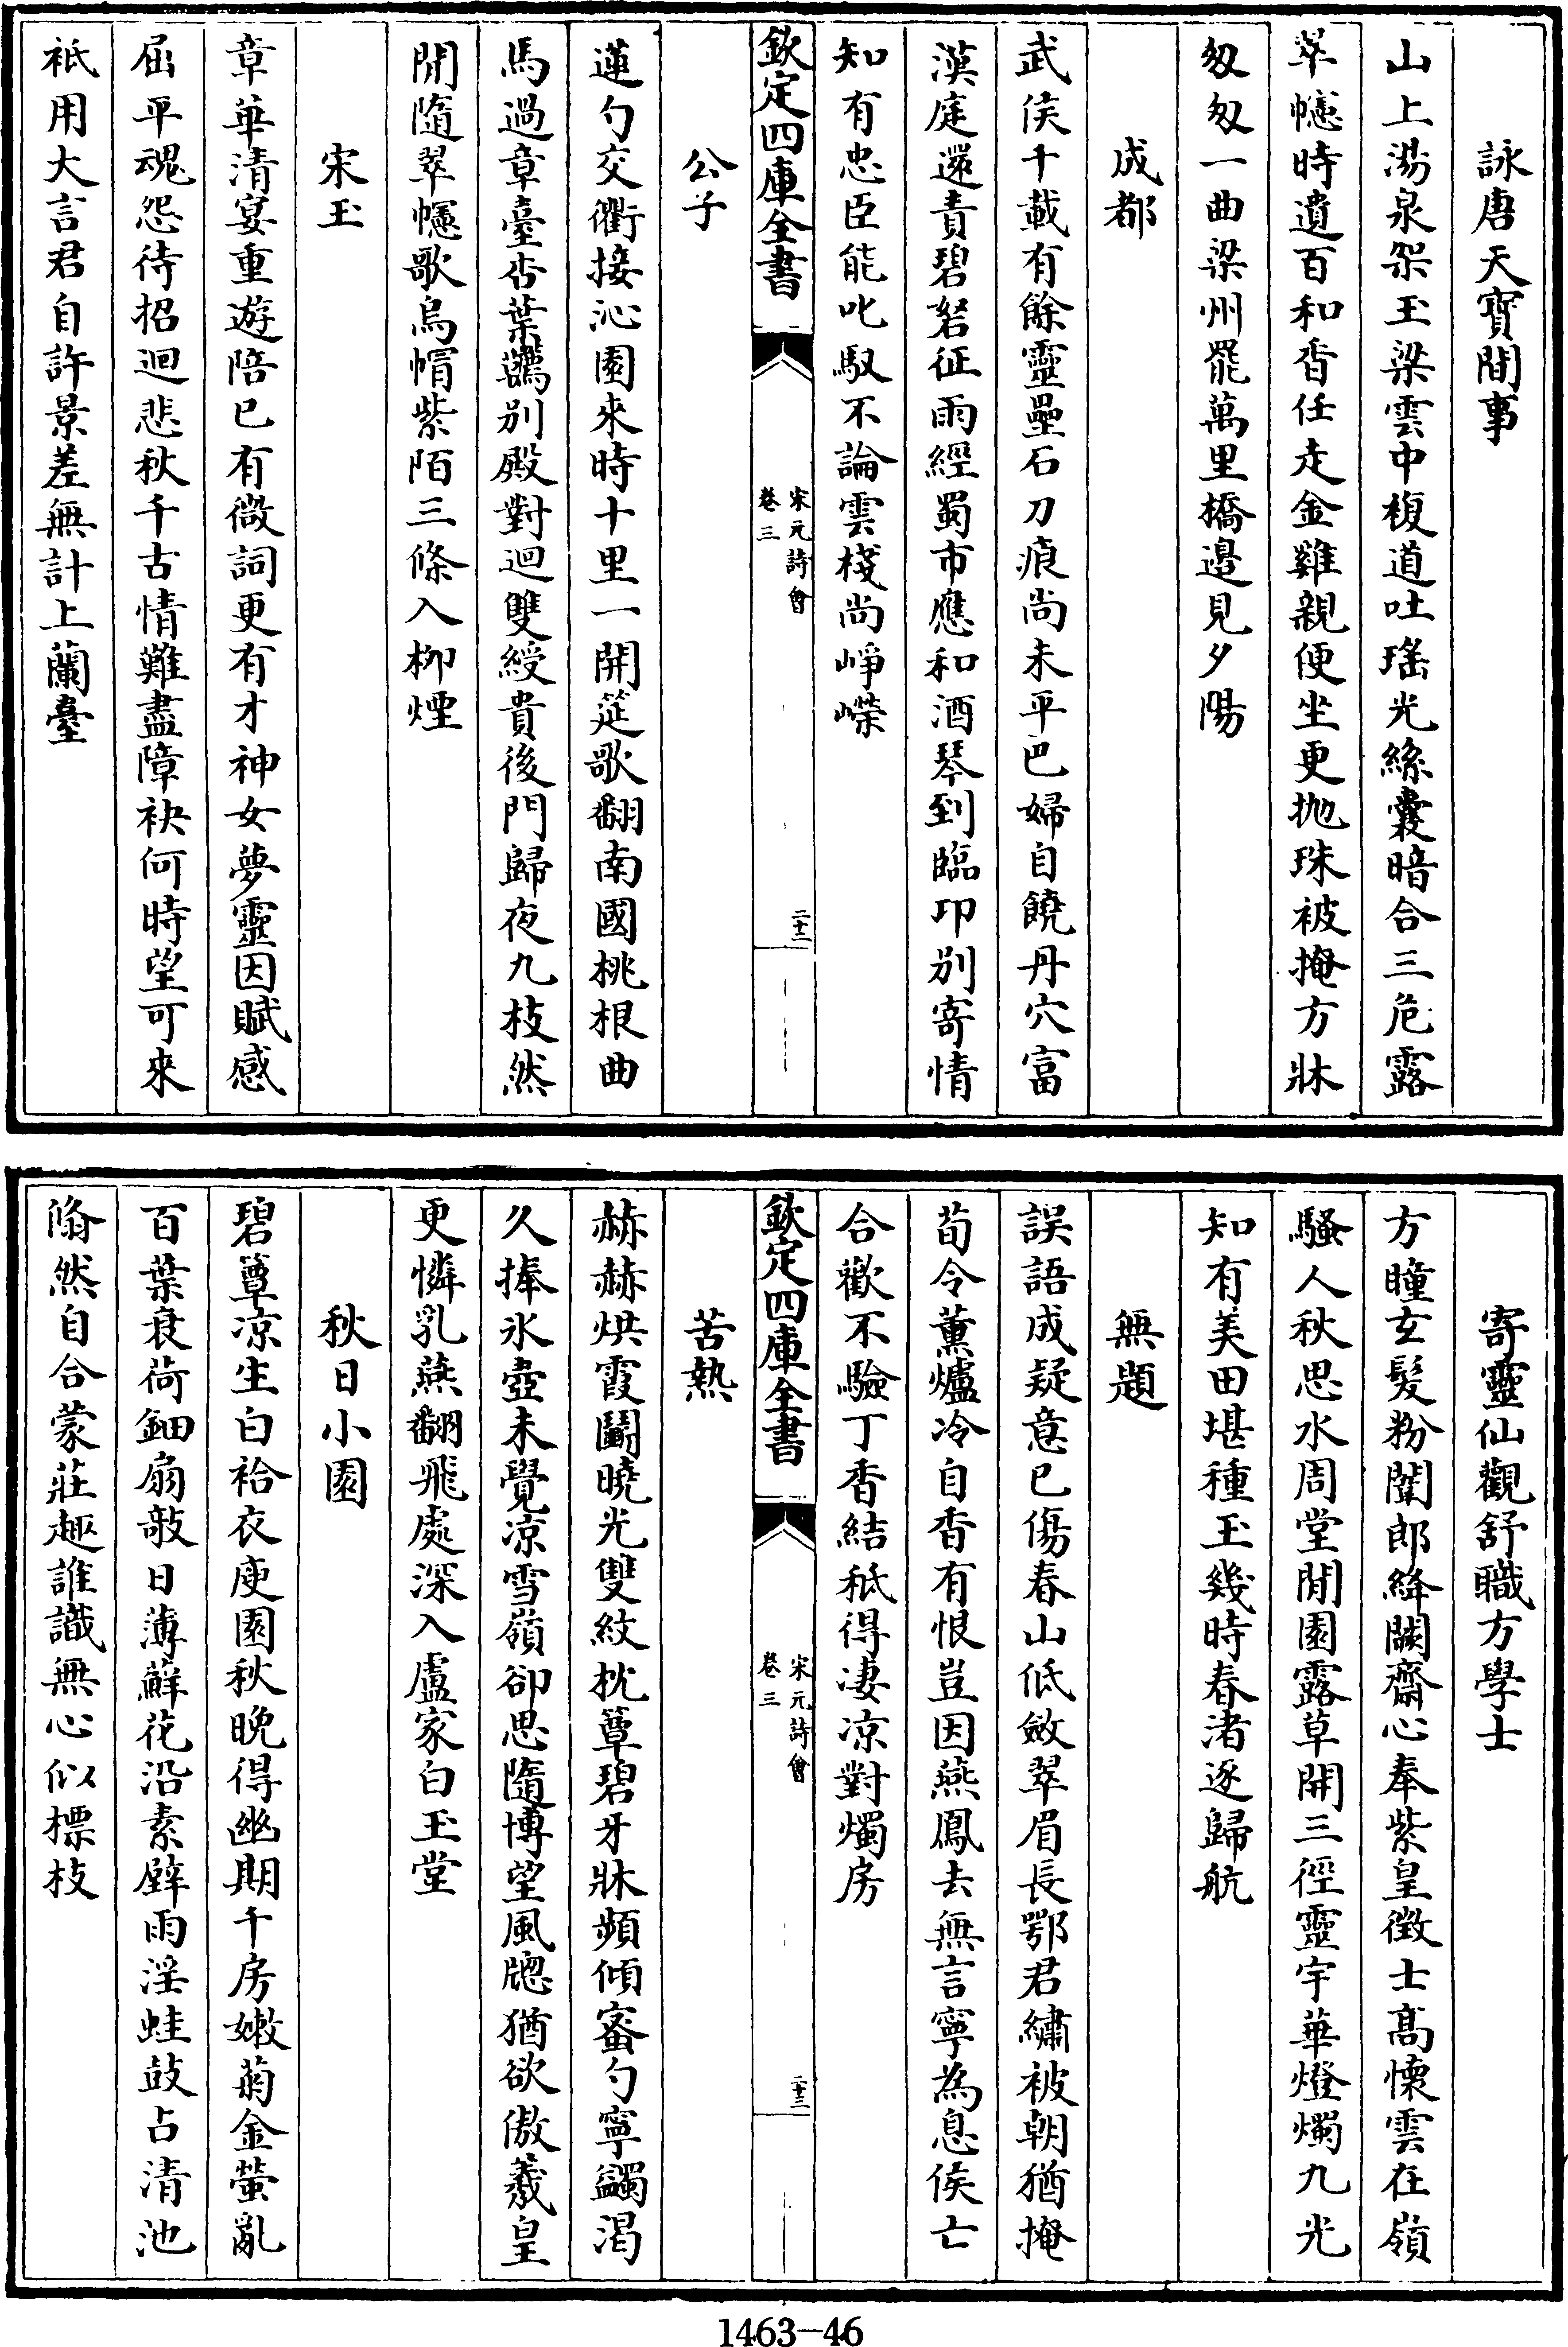 詠唐天寶間事
山上湯泉架玉梁雲中複道吐瑤光絲囊暗合三危露
翠幰時遺百和香任走金雞親便坐更抛珠被掩方牀
匆匆一曲梁州罷萬里橋邊見夕陽
成都
武侯千載有餘靈壘石刀痕尚未平巴婦自饒丹穴富
漢庭還責碧砮征雨經蜀市應和酒琴到臨邛别寄情
知有忠臣能叱馭不論雲棧尚崢嶸
欽定四庫全書
宋元詩會
卷三
二十二
公子
蓮勺交衢接沁園來時十里一開筵歌翻南國桃根曲
馬過章臺杏葉韉别殿對迴雙綬貴後門歸夜九枝然
閒隨翠幰歌烏帽紫陌三條入柳煙
宋玉
章華清宴重遊陪已有微詞更有才神女夢靈因賦感
屈平魂怨待招迴悲秋千古情難盡障袂何時望可來
祇用大言君自許景差無計上蘭臺
寄靈仙觀舒職方學士
方瞳玄髮粉闈郎絳闕齋心奉紫皇徵士髙懷雲在嶺
騷人秋思水周堂閒園露草開三徑靈宇華燈燭九光
知有美田堪種玉幾時春渚逐歸航
無題
誤語成疑意已傷春山低斂翠眉長鄂君繡被朝猶掩
荀令薫爐冷自香有恨豈因燕鳳去無言寧為息侯亡
合歡不驗丁香結秪得凄凉對燭房
欽定四庫全書
宋元詩會
卷三
二十三
苦熱
赫赫烘霞鬭曉光雙紋枕簟碧牙牀頻傾蜜勺寧蠲渇
久捧氷壺未覺凉雪嶺卻思隨博望風牎猶欲傲羲皇
更憐乳燕翻飛處深入盧家白玉堂
秋日小園
碧簟凉生白袷衣庾園秋晚得幽期千房嫩菊金螢亂
百葉衰荷鈿扇欹日薄蘚花沿素壁雨淫蛙鼓占清池
翛然自合蒙莊趣誰識無心似標枝
1463-46